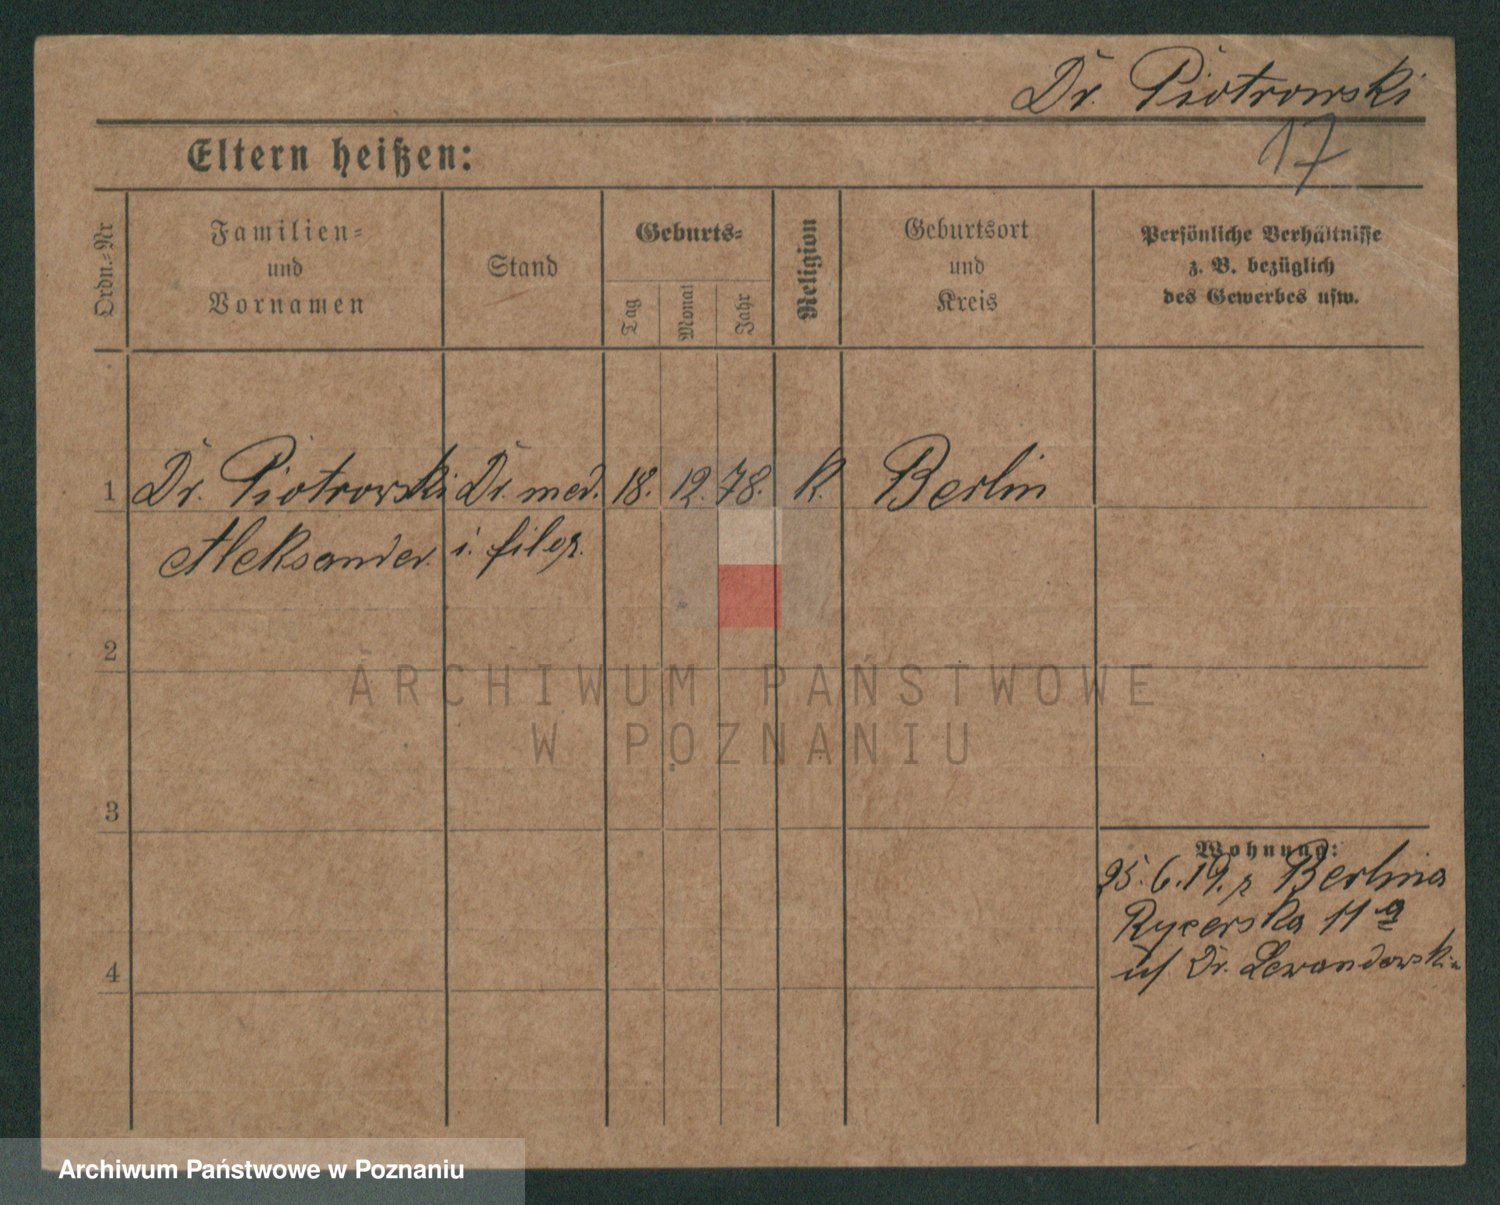 Dr. Piotrowski
17
Eltern heißen:
Ordn.-Nr
Familien-
und
Vornamen
Stand
Geburts-
Tag
Monat
Jahr
Religion
Geburtsort
und
Kreis
Persönliche Verhältnisse
z. B. bezüglich
des Gewerbes usw.
1 Dr. Piotrowski Dr. med. 18. 12. 78. K. Berlin
Aleksander. i. filoz.
2
ARCHIWUM PAŃSTWOWE
W POZNANIU
3
Wohnung:
25.6.19. z Berlina
Rycerska 11a
u/ Dr. Lewandowski
4
Archiwum Państwowe w Poznaniu